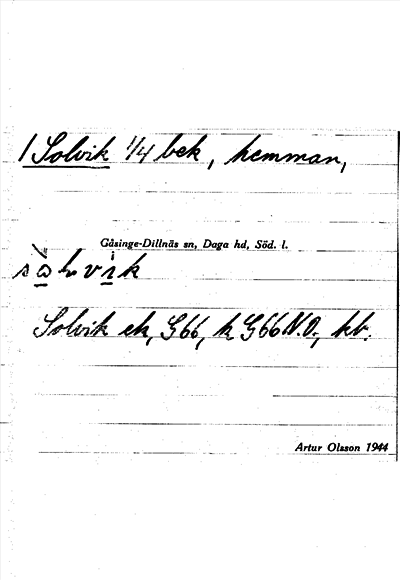 1 Solvik 1/4 bek, hemman,
Gåsinge-Dillnäs sn, Daga hd, Söd. l.
Solvik ek, G66, k G66 N.O., kb.
Artur Olsson 1944